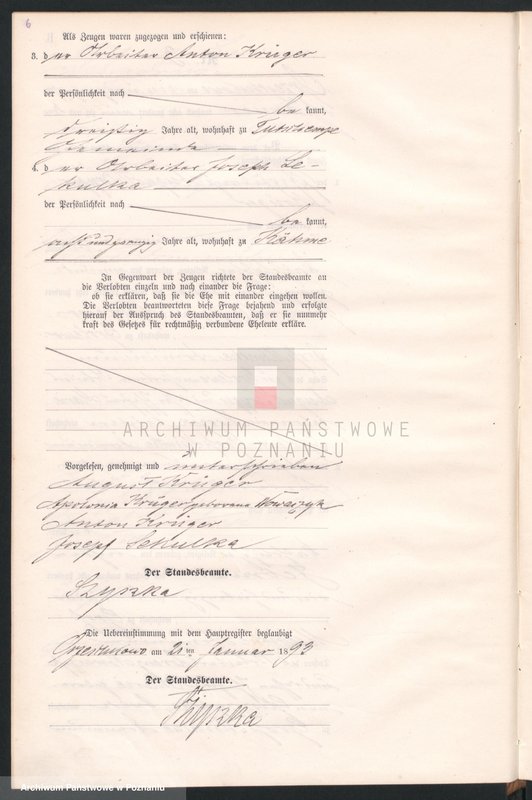 6
Als Zeugen waren zugezogen und erschienen:
3. der Arbeiter Anton Krüger
der Persönlichkeit nach
be kannt,
dreißig Jahre alt, wohnhaft zu
Gemeinde
4. der Arbeiter Joseph Se-
kulka
der Persönlichkeit nach
be kannt,
acht und zwanzig Jahre alt, wohnhaft zu Kähme
In Gegenwart der Zeugen richtete der Standesbeamte an
die Verlobten einzeln und nach einander die Frage:
ob sie erklären, daß sie die Ehe mit einander eingehen wollen.
Die Verlobten beantworteten diese Frage bejahend und erfolgte
hierauf der Ausspruch des Standesbeamten, daß er sie nunmehr
kraft des Gesetzes für rechtmäßig verbundene Eheleute erkläre.
ARCHIWUM PAŃSTWOWE
W POZNANIU
Vorgelesen, genehmigt und unterschrieben
August Krüger
Apolonia Krüger geborene Nowaczyk
Anton Krüger
Josef Sekulka
Der Standesbeamte.
Szyszka
Die Uebereinstimmung mit dem Hauptregister beglaubigt
am 21 ten Januar 1893
Der Standesbeamte.
Szyszka
Archiwum Państwowe w Poznaniu